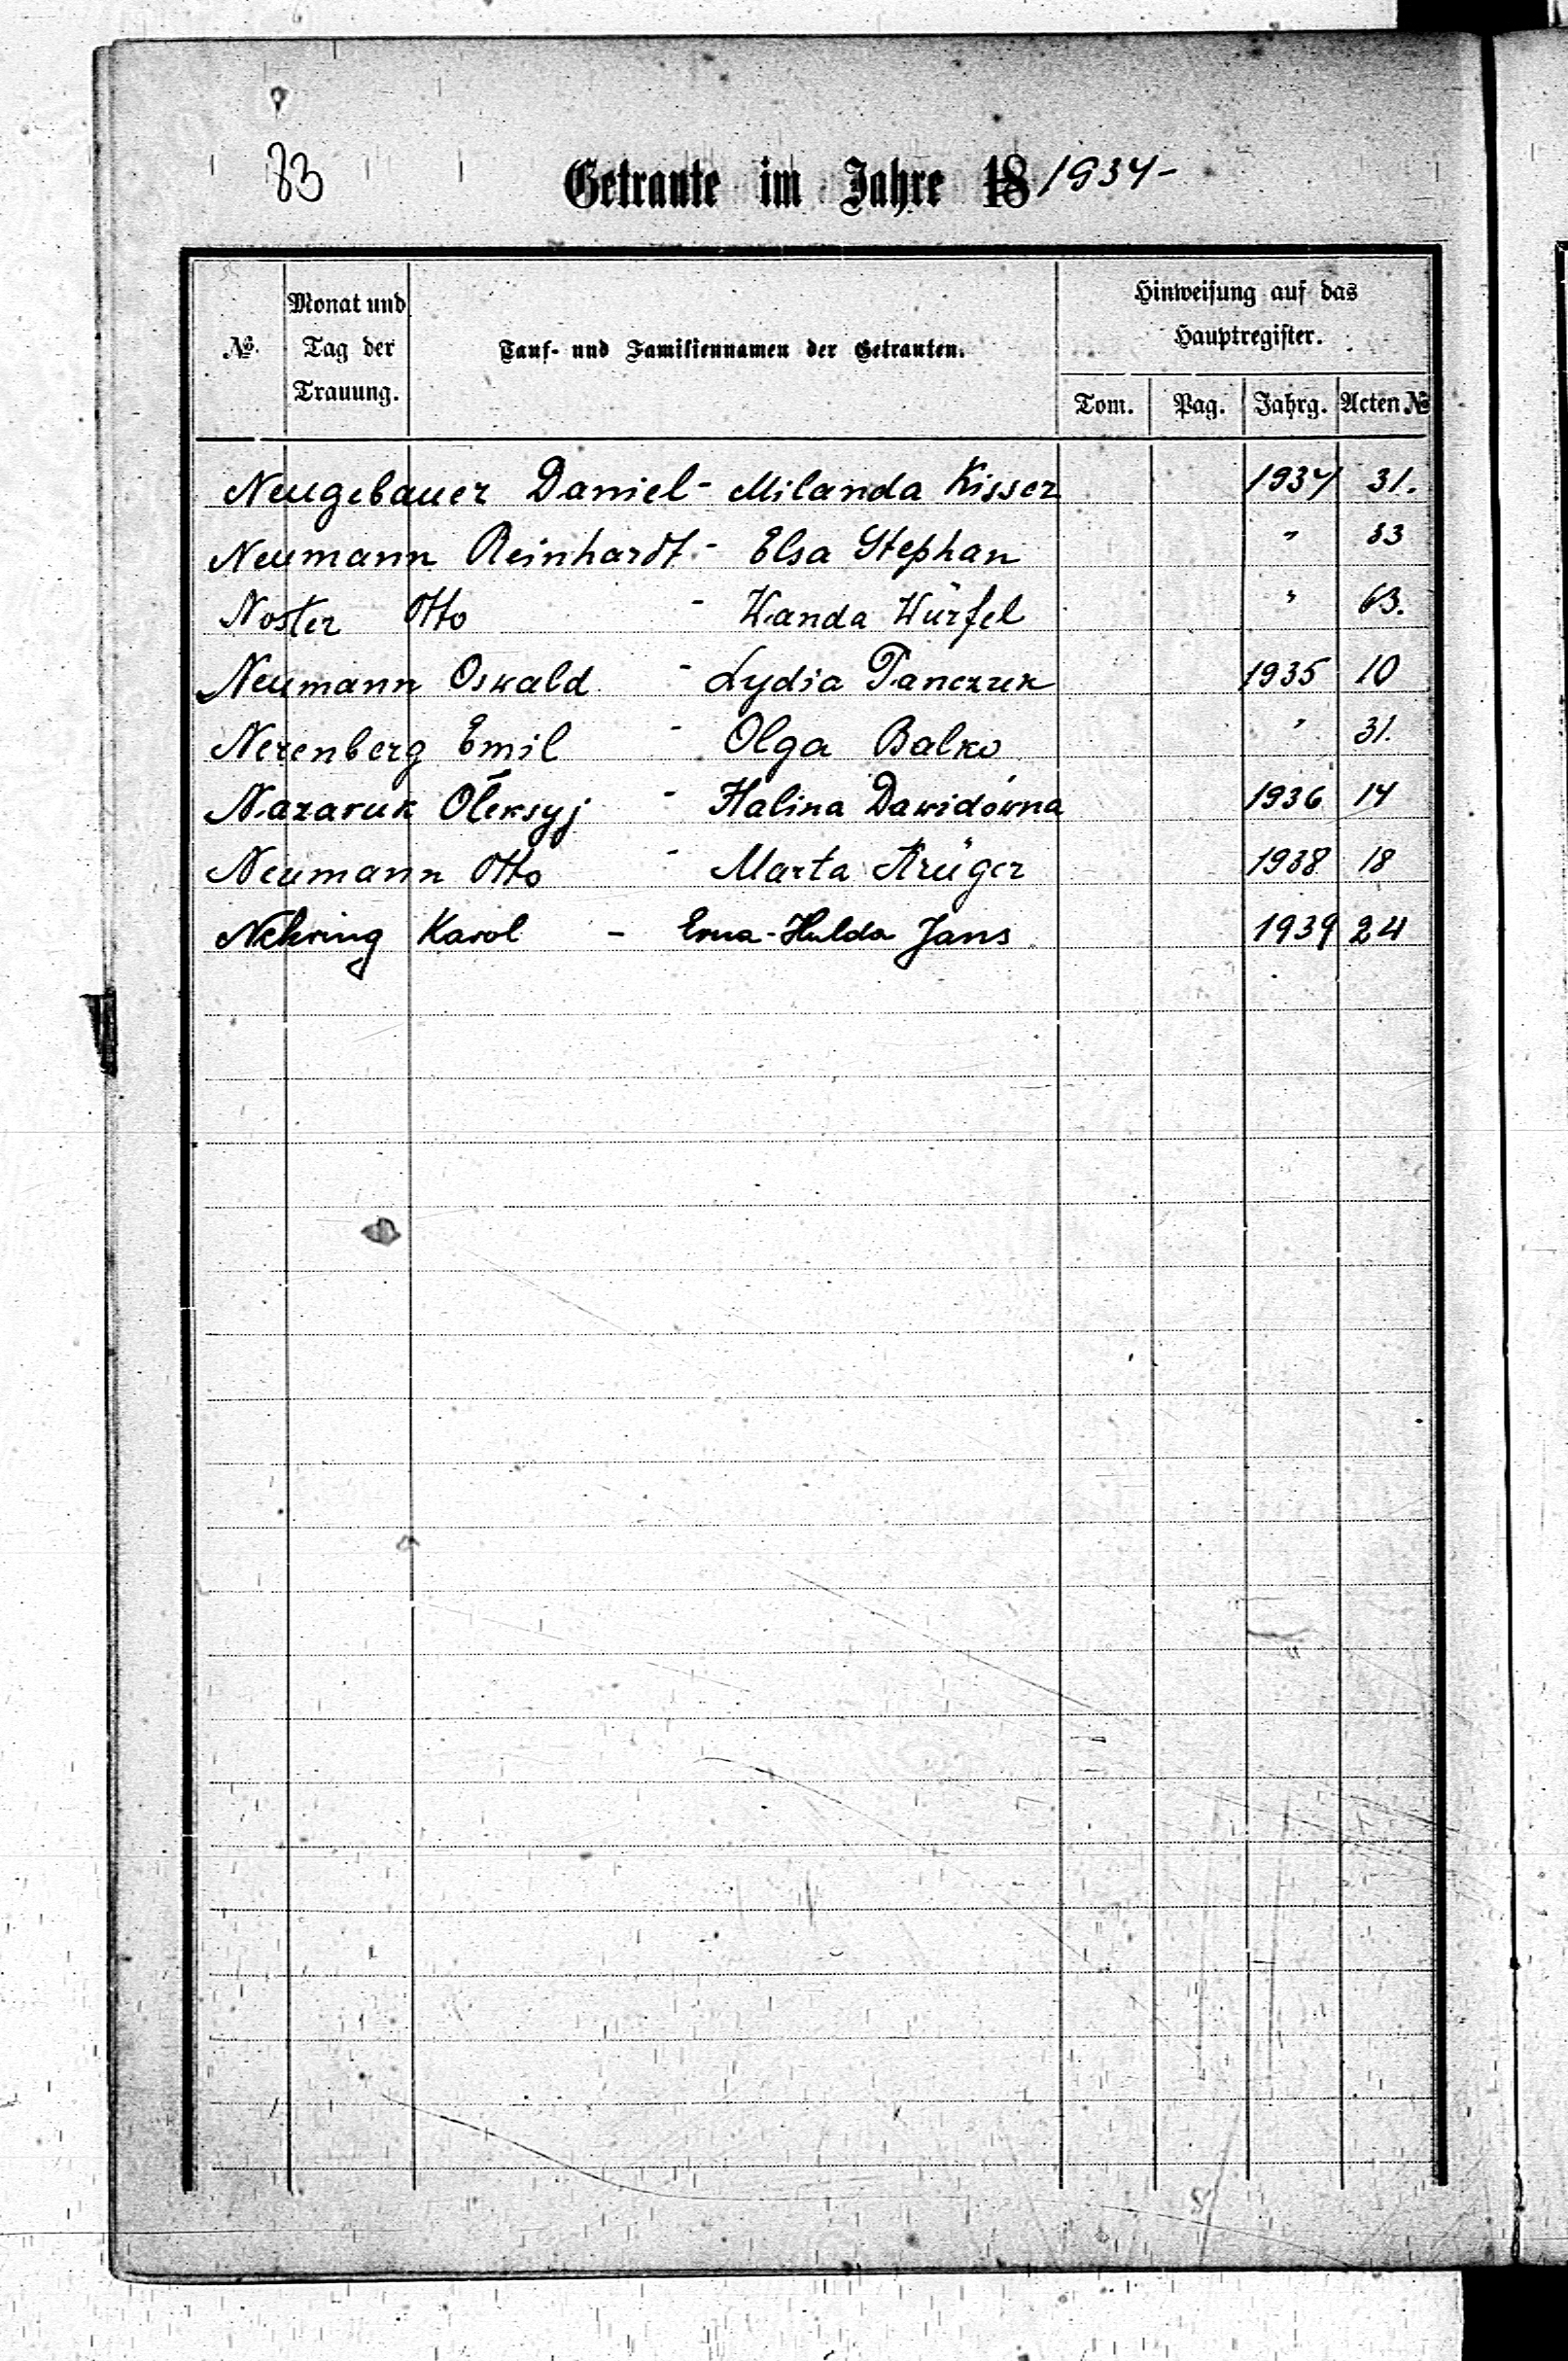 83
Getraute im Jahre 18 1934-
№. Monat und Tag der Trauung. Tauf- und Familiennamen der Getrauten. Hinweisung auf das Hauptregister.
Tom. Pag. Jahrg. Acten №
Neugebauer Daniel - Milanda Kisser 1934 31.
Neumann Reinhardt - Elsa Stephan " 33
Noster Otto - Wanda Würfel " 63.
Neumann Oswald - Lydia Panczuk 1935 10
Nerenberg Emil - Olga Balko " 31.
Nazaruk Oleksyj - Halina Dawidówna 1936 14
Neumann Otto - Marta Krüger 1938 18
Nehring Karol - Erna-Hulda Jans 1939 24